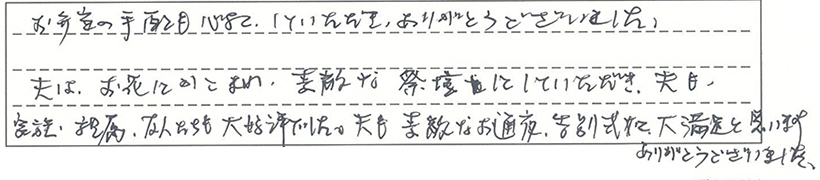 お弁当の手配も心よく、していただき、ありがとうございました。
夫は、お花にかこまれ、素敵な祭壇にしていただき、夫も、
家族、親属、友人たちも大好評でした。夫も素敵なお通夜、告別式で、大満足と思います
ありがとうございました。